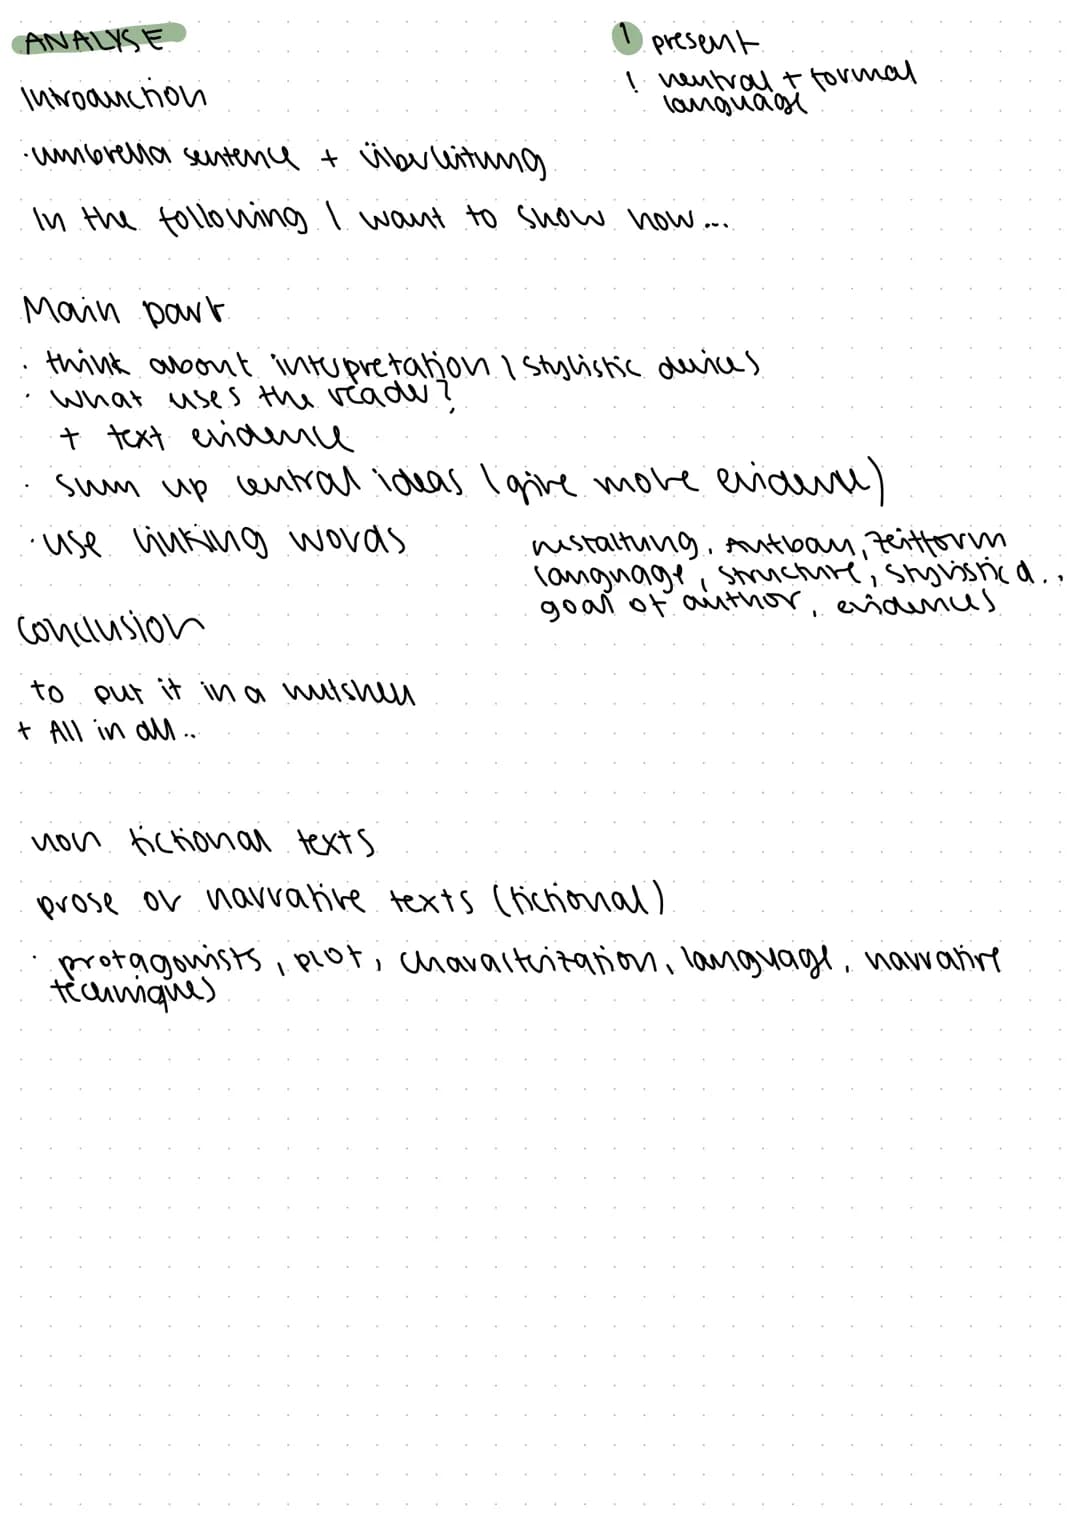 ANALYSE
! present
! neutral + formal
language
Introduction
· umbrella sentence + Überleitung
In the following I want to show how...
Main part
· think about interpretation / stylistic devices
· what uses the reader?
+ text evidence
· sum up central ideas (give more evidence)
· use linking words
Gestaltung, Aufbau, Zeitform
language, structure, stylistic d..
goal of author, evidences
Conclusion
to put it in a nutshell
+ All in all..
non fictional texts
prose or narrative texts (fictional)
· protagonists, plot, characterization, language, narrative
techniques